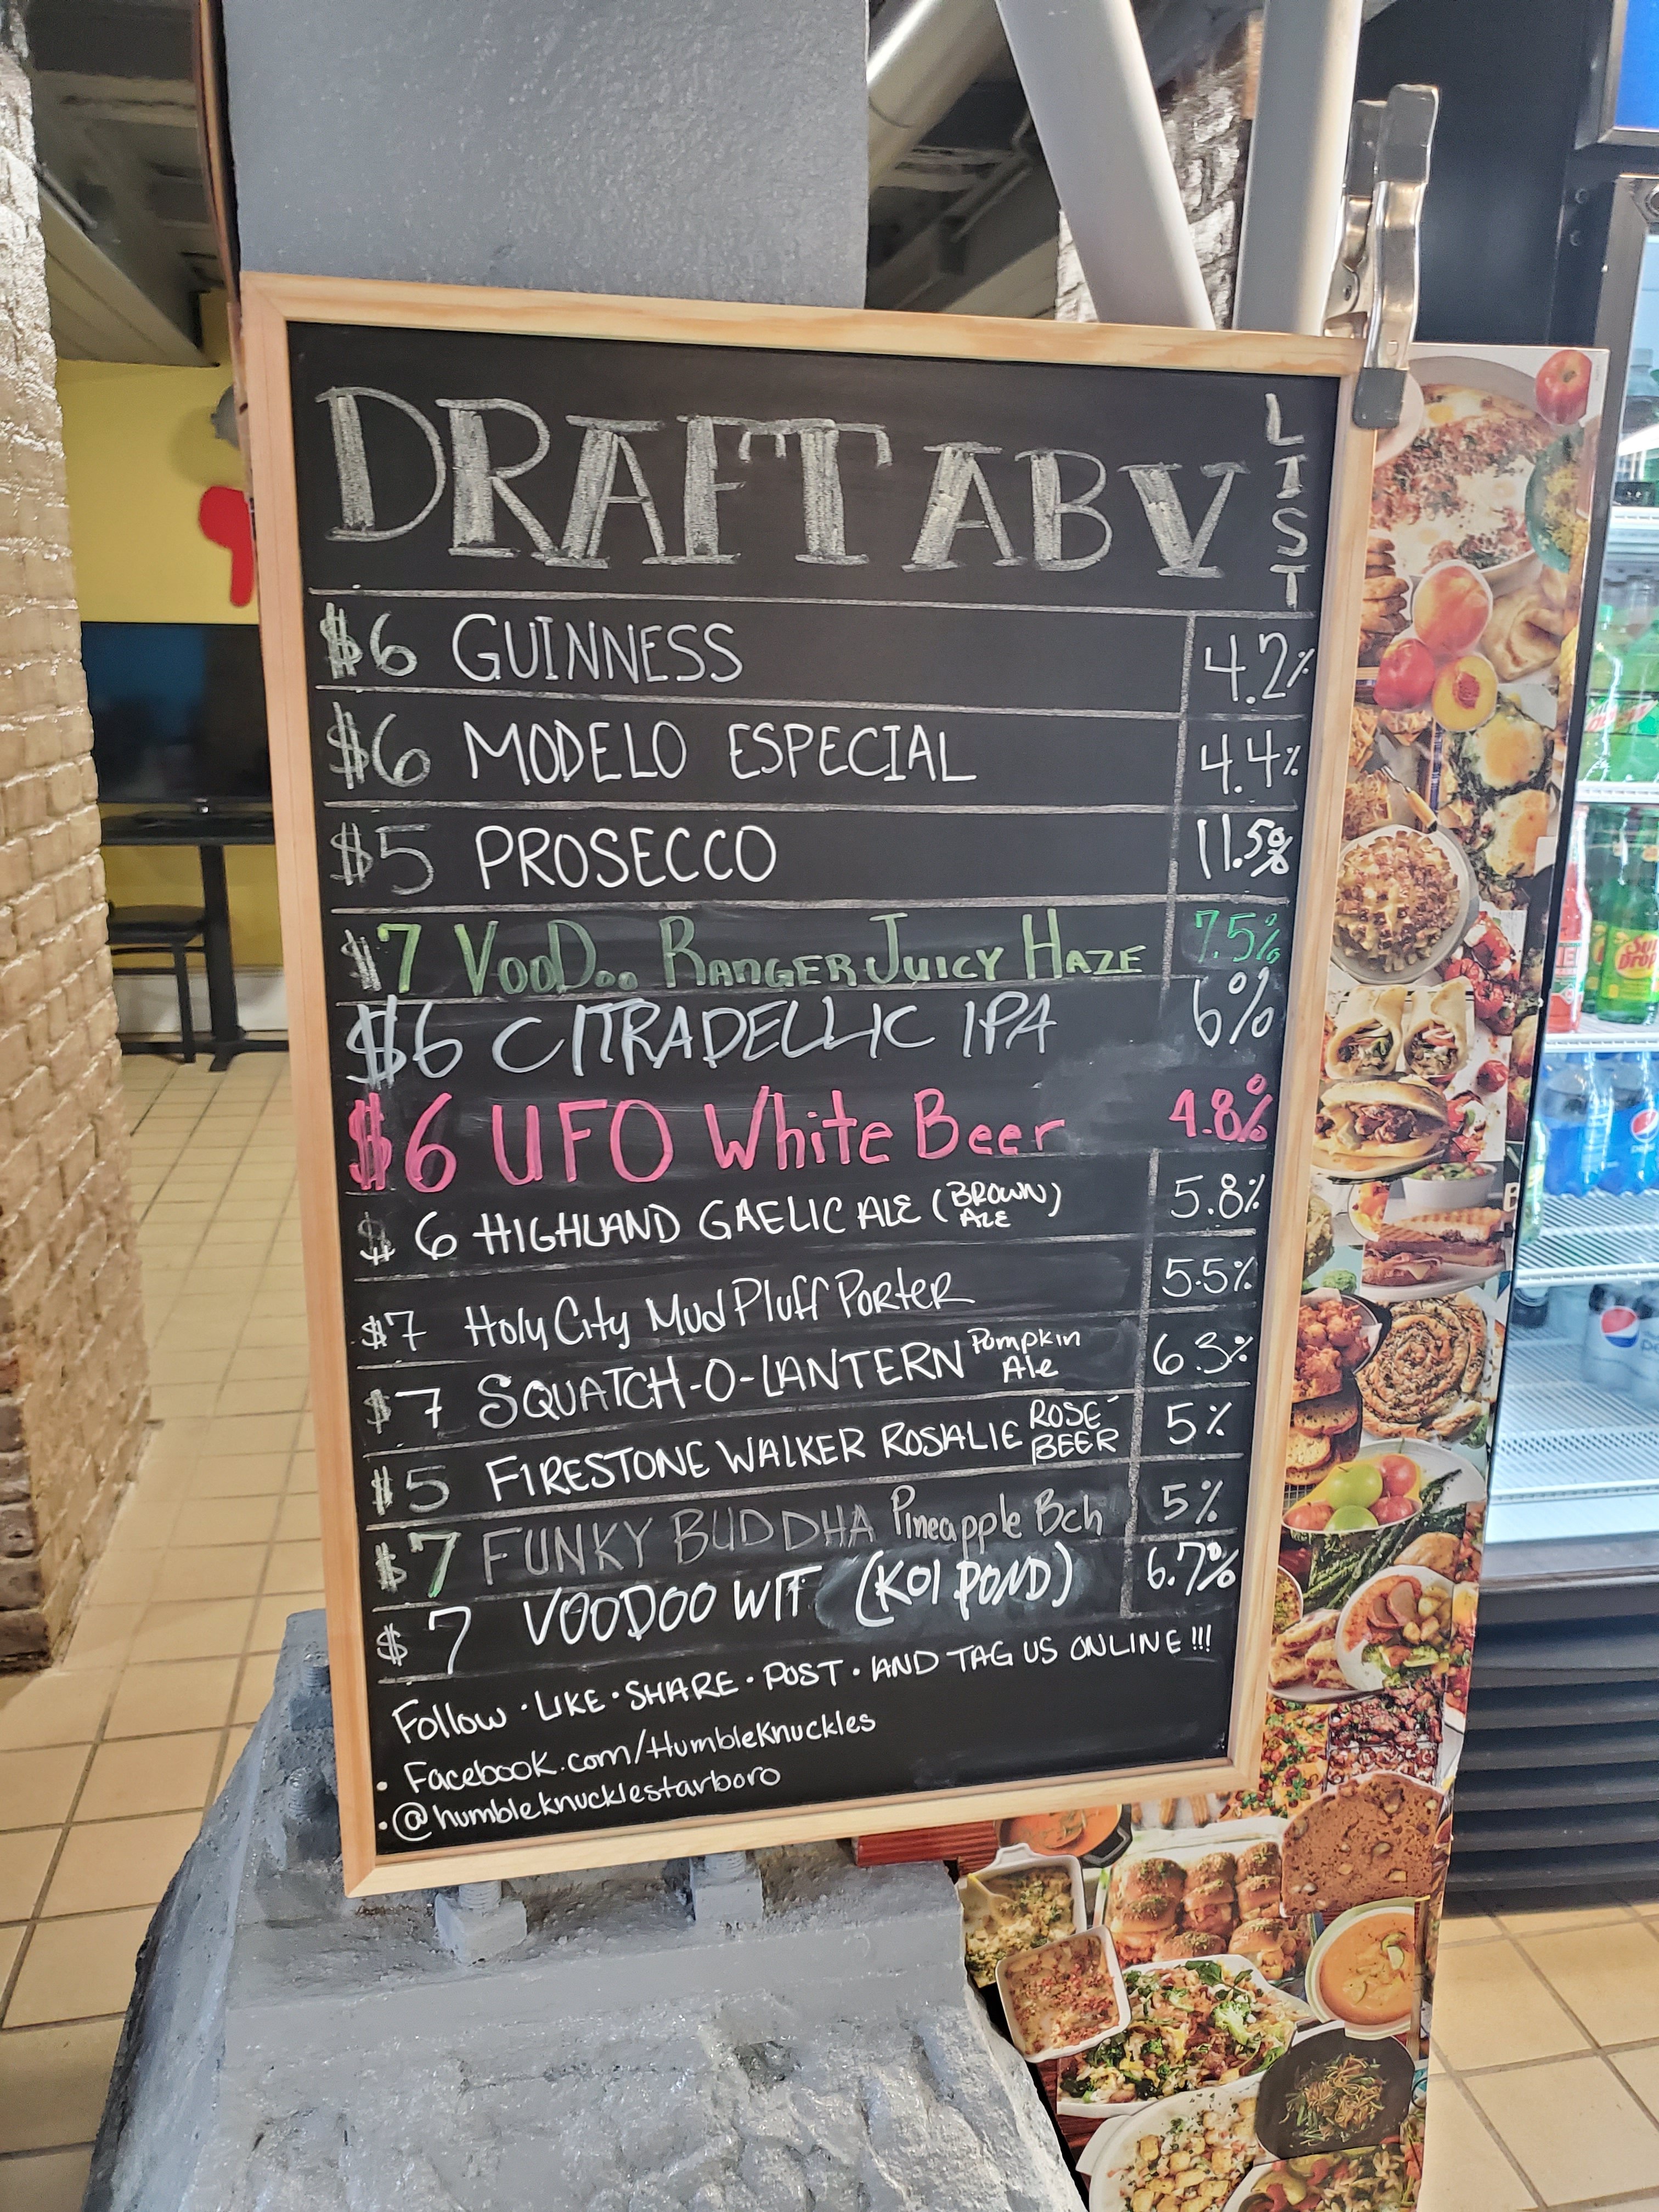 DRAFT ABV LIST
$6 GUINNESS 4.2%
$6 MODELO ESPECIAL 4.4%
$5 PROSECCO 11.5%
$7 VOODOO RANGER JUICY HAZE 7.5%
$6 CITRADELLIC IPA 6%
$6 UFO White Beer 4.8%
$6 HIGHLAND GAELIC ALE (BROWN ALE) 5.8%
$7 Holy City Mud Pluff Porter 5.5%
$7 SQUATCH-O-LANTERN Pumpkin Ale 6.3%
$5 FIRESTONE WALKER ROSALIE ROSE' BEER 5%
$7 FUNKY BUDDHA Pineapple Bch 5%
$7 VOODOO WIT (KOI POND) 6.7%
Follow · LIKE · SHARE · POST · AND TAG US ONLINE!!!
• Facebook.com/HumbleKnuckles
• @humbleknucklestarboro
Sun Drop